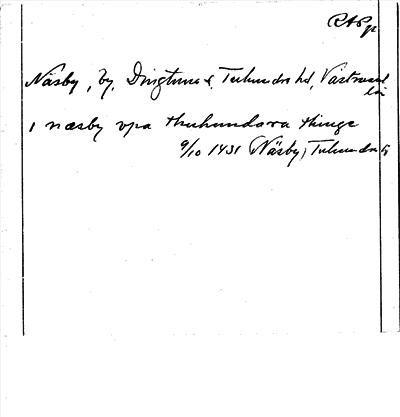 RAp
Näsby, by, Dingtuna s, Tuhundra hd, Västmanl
län
i næsby vpa thuhundara thinge
9/10 1431 (Näsby, Tuhundra)